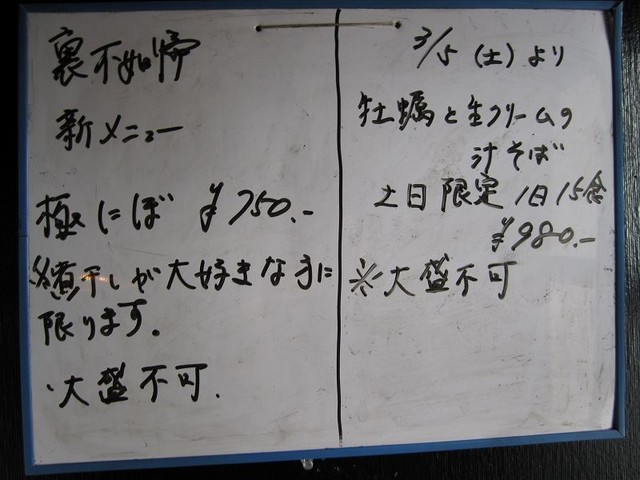 裏不如帰
新メニュー
極にぼ ¥750.-
煮干しが大好きな方に
限ります。
・大盛不可.
3/5(土)より
牡蠣と生クリームの
汁そば
土日限定1日15食
¥980.-
※大盛不可